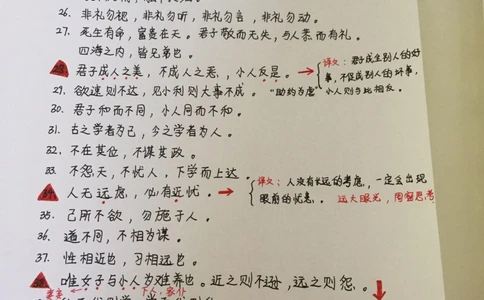 26. 非礼勿视，非礼勿听，非礼勿言，非礼勿动。
27. 死生有命，富贵在天。君子敬而无失，与人恭而有礼。
四海之内，皆兄弟也。
28. 君子成人之美，不成人之恶，小人反是。
译文：君子成全别人的好事，不促成别人的坏事，
小人则与此相反。
29. 欲速则不达，见小利则大事不成。
30. 君子和而不同，小人同而不和。
31. 古之学者为己，今之学者为人。
32. 不在其位，不谋其政。
33. 不怨天，不忧人，下学而上达。
34. 人无远虑，必有近忧。
译文：人没有长远的考虑，一定会出现
眼前的忧患。 远大眼光，周密思考
35. 己所不欲，勿施于人。
36. 道不同，不相为谋。
37. 性相近也，习相远也。
38. 唯女子与小人为难养也。近之则不逊，远之则怨。